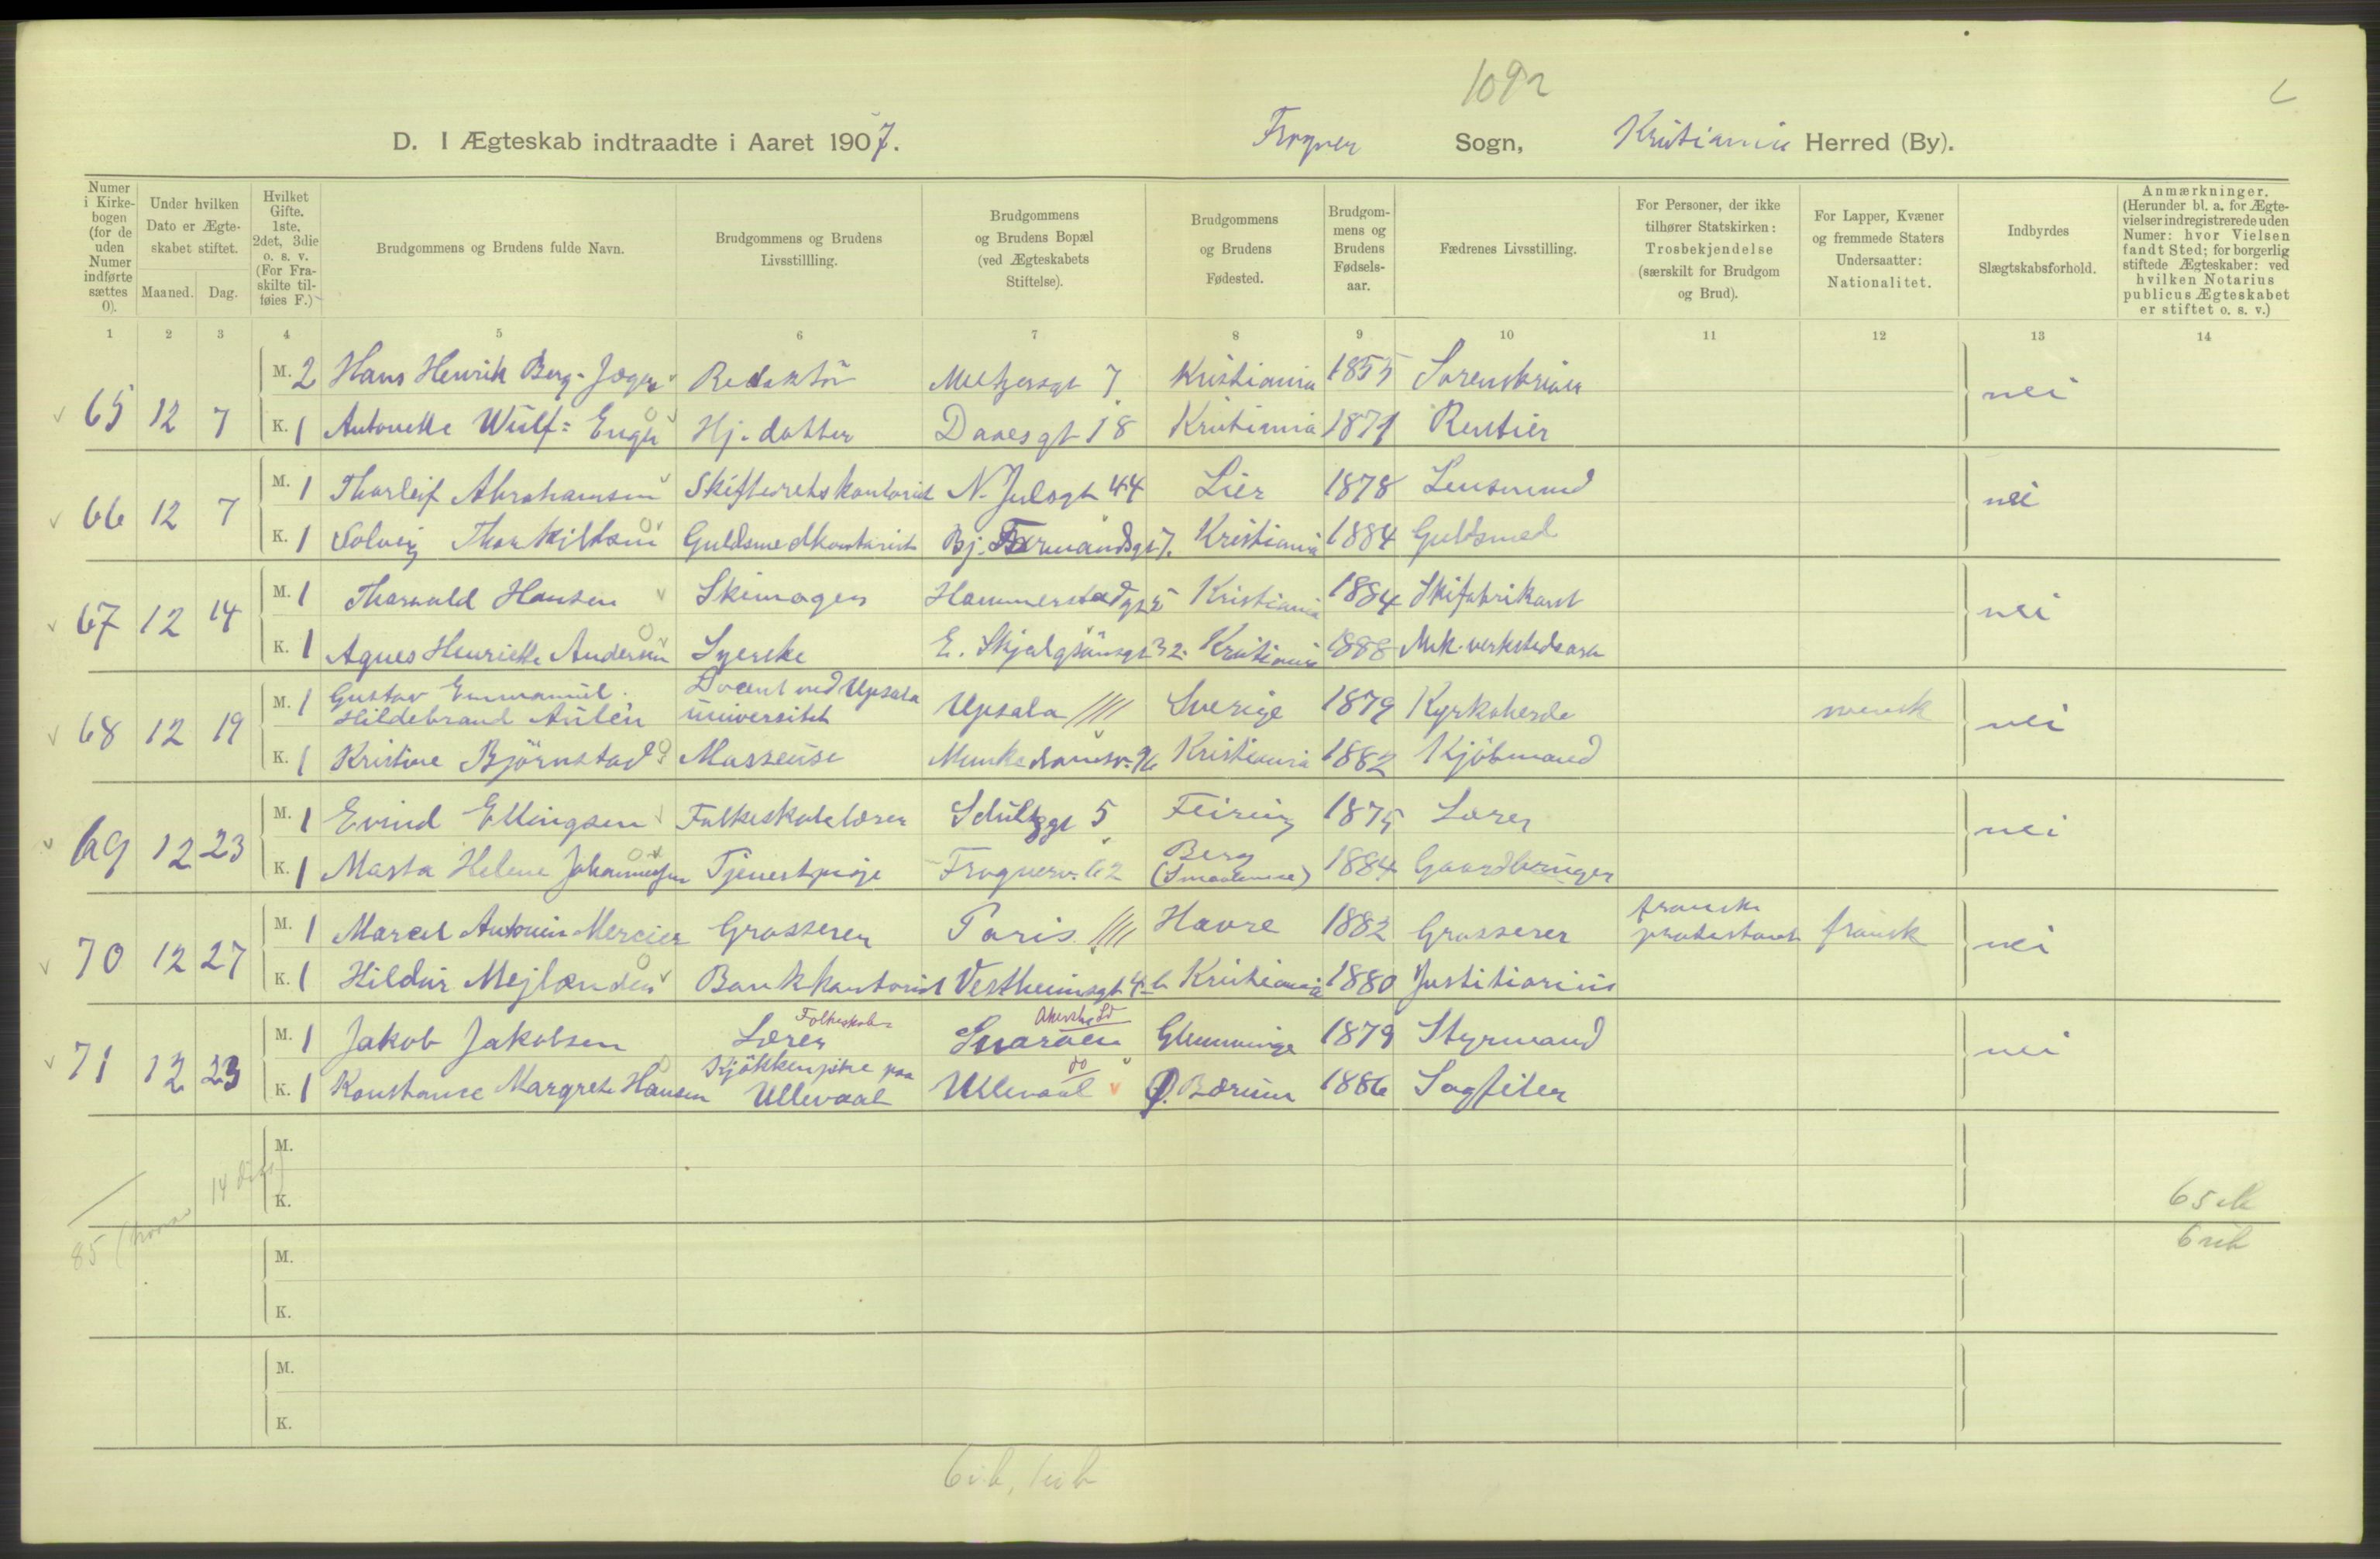 1092
D. I Ægteskab indtraadte i Aaret 1907. Frogner Sogn, Kristiania Herred (By).
Numer i Kirkebogen (for de uden Numer indførte sættes 0).
Under hvilken Dato er Ægteskabet stiftet.
Maaned. Dag.
Hvilket Gifte. 1ste, 2det, 3die o. s. v. (For Fraskilte tilføies F.)
Brudgommens og Brudens fulde Navn.
Brudgommens og Brudens Livsstillling.
Brudgommens og Brudens Bopæl (ved Ægteskabets Stiftelse).
Brudgommens og Brudens Fødested.
Brudgommens og Brudens Fødselsaar.
Fædrenes Livsstilling.
For Personer, der ikke tilhører Statskirken: Trosbekjendelse (særskilt for Brudgom og Brud).
For Lapper, Kvæner og fremmede Staters Undersaatter: Nationalitet.
Indbyrdes Slægtskabsforhold.
Anmærkninger. (Herunder bl. a. for Ægtevielser indregistrerede uden Numer: hvor Vielsen fandt Sted; for borgerlig stiftede Ægteskaber: ved hvilken Notarius publicus Ægteskabet er stiftet o. s. v.)
1 2 3 4 5 6 7 8 9 10 11 12 13 14
M. 2 Hans Henrik Berg-Jæger Redaktör Meltzersgt 7 Kristiania 1855 Sorenskriver
65 12 7 nei
K. 1 Antonette Wülf-Engh Hj. datter Daaesgt 18 Kristiania 1871 Rentier
M. 1 Thorleif Abrahamsen Skifteretskontorist N. Julsgt 44 Lier 1878 Lensmand
66 12 7 nei
K. 1 Solveig Thorkildsen Guldsmedkontorist Bj. Farmandsgt 7. Kristiania 1884 Guldsmed
M. 1 Thorvald Hansen Skimager Hammerstadgt 5 Kristiania 1884 Skifabrikant
67 12 14 nei
K. 1 Agnes Henriette Andersen Syerske E. Skjalgsönsgt 32 Kristiania 1888 Mek. verkstedsarb
M. 1 Gustav Emmanuel Hildebrand Aulén Docent ved Upsala universitet Upsala Sverige 1879 Kyrkoherde svensk
68 12 19 nei
K. 1 Kristine Björnstad Masseuse Munkedamsv. 76 Kristiania 1882 Kjöbmand
M. 1 Evind Ellingsen Folkeskolelærer Schultzgt 5 Feiring 1875 Lærer
69 12 23 nei
K. 1 Marta Helene Johannessen Tjenestpige Frognerv. 62 Berg (Smaalenene) 1884 Gaardbruger
M. 1 Marcel Antonin Mercier Grosserer Paris Havre 1882 Grosserer fransk protestant fransk
70 12 27 nei
K. 1 Hildur Mejlænder Bankkontorist Vestheimsgt 4b Kristiania 1880 Justitiarius
M. 1 Jakob Jakobsen Folkeskole Lærer Akershus Snaröen Glemminge 1879 Styrmand
71 12 23 nei
K. 1 Konstance Margrete Hansen Kjökkenpike paa Ullevaal do Ullevaal Ø. Bærum 1886 Sagfiler
M.
14 dage
K.
65 ek
85
6 uk
M.
K.
M.
K.
6 ib, 1 ub